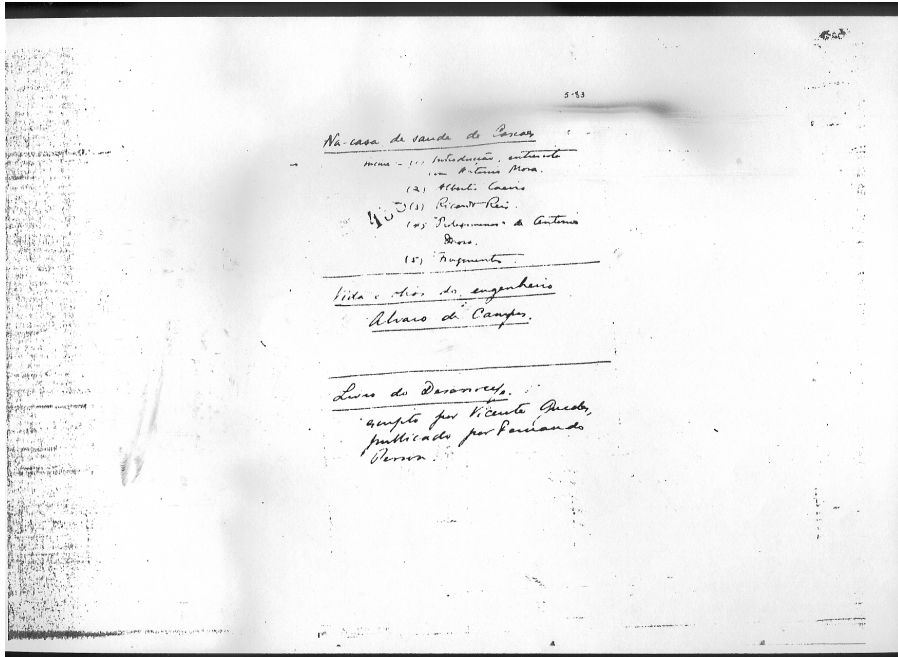 5-83
Na casa de saude de Cascaes
(1) Introducção, entrevista
com Antonio Mora.
(2) Alberto Caeiro
(3) Ricardo Reis.
(4) "Prolegomenos" de Antonio
Mora.
(5) Fragmentos.
Vida e obras do engenheiro
Alvaro de Campos.
Livro do Desasocego.
escripto por Vicente Guedes,
publicado por Fernando
Pessoa.